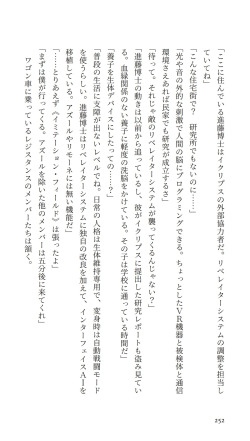 「ここに住んでいる進藤博士はイクリプスの外部協力者だ。リベレイターシステムの調整を担当し
ていてね」
「こんな住宅街で？　研究所でもないのに……」
「光や音の外的な刺激で人間の脳にプログラミングできる。ちょっとしたVR機器と被検体と通信
環境さえあれば民家でも研究が成立するさ」
「待って。それじゃ敵のリベレイターシステムが襲ってくるんじゃない？」
「進藤博士の動きは以前から追っているし、彼がイクリプスに提出した研究レポートも盗み見てい
る。血縁関係のない養子に軽度の洗脳をかけている。その子は学校に通っている時間だ」
「養子を生体デバイスにしたっての……？」
「普段の生活に支障が出ないレベルでね。日常の人格は生体維持専用で、変身時は自動戦闘モード
を使うらしい。進藤博士はリベレイターシステムに独自の改良を加えて、インターフェイスAIを
移植している。アズールやリモーネには無い機能だ」
「……とりあえず《イミテーション・フィールド》は張ったよ」
「まずは僕が行ってくる。アズールを除いた他のメンバーは五分後に来てくれ」
　ワゴン車に乗っているレジスタンスのメンバーたちは頷く。
252